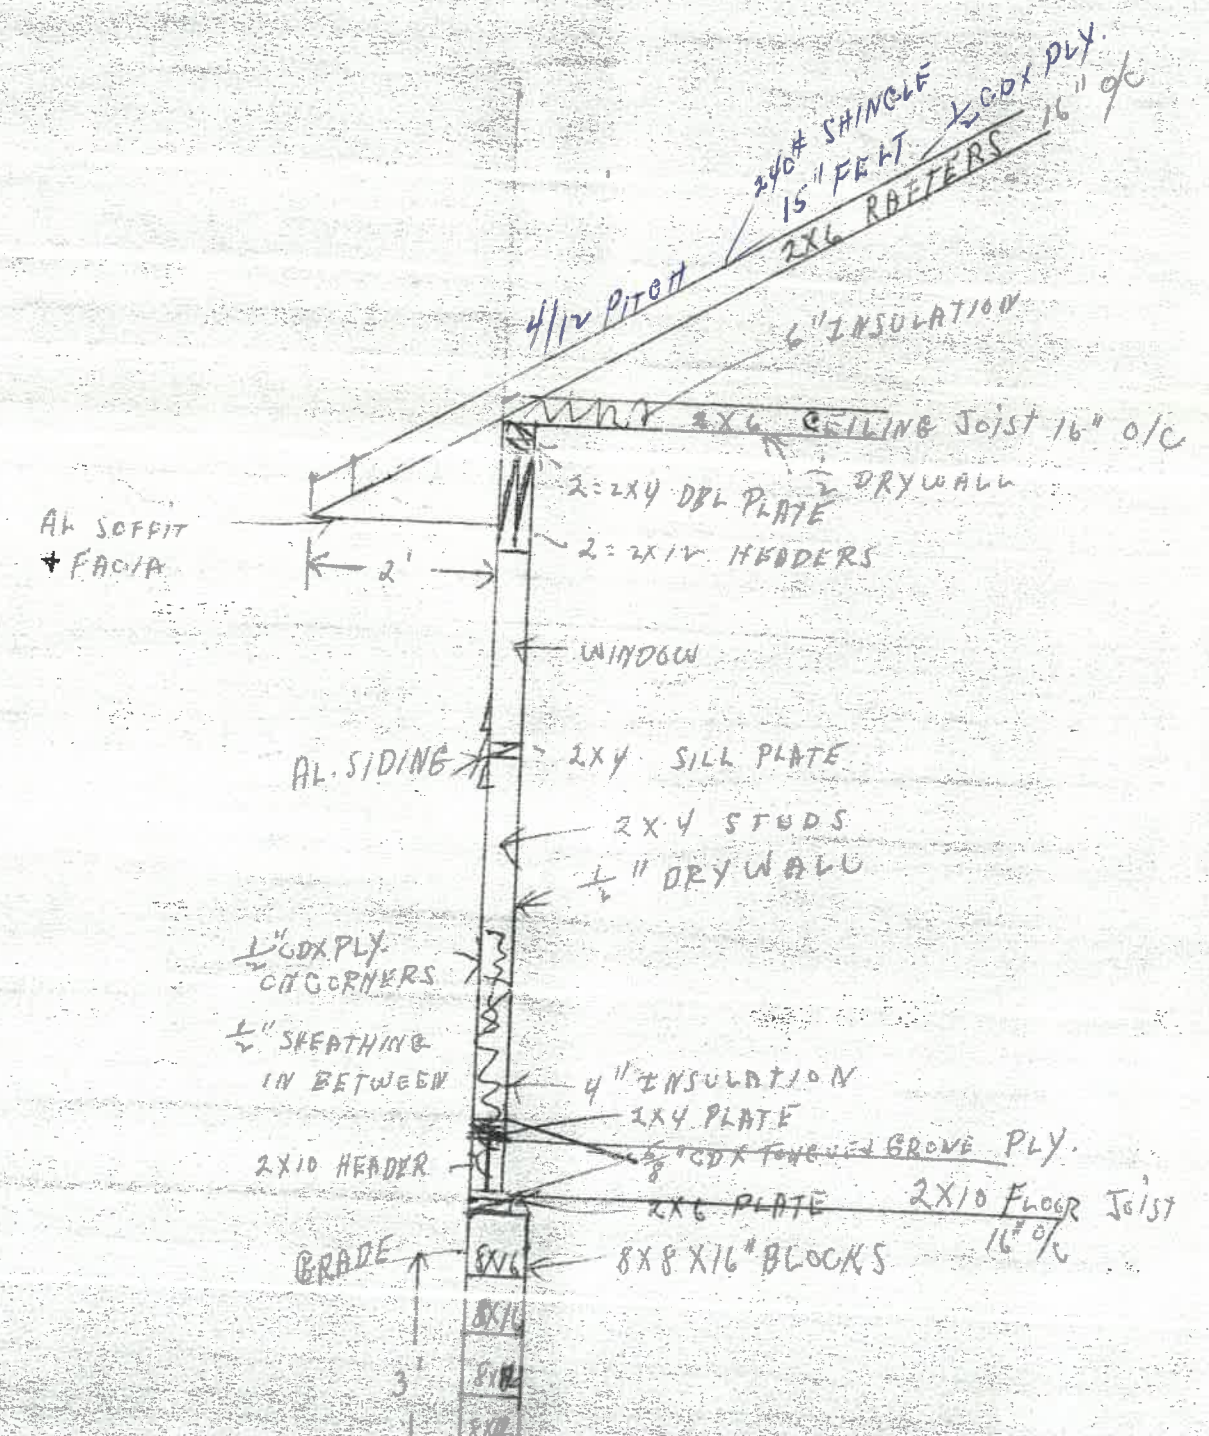 240# SHINGLE
15" FELT
1/2 CDX PLY.
16" O/C
2X6 RAFTERS
4/12 PITCH
6" INSULATION
2X6 CEILING JOIST 16" O/C
1/2 DRYWALL
2=2X4 DBL PLATE
2=2X12 HEADERS
AL SOFFIT
+ FACIA
2'
WINDOW
AL. SIDING
2X4 SILL PLATE
2X4 STUDS
1/2" DRYWALL
1/2" CDX PLY.
ON CORNERS
1/2" SHEATHING
IN BETWEEN
4" INSULATION
2X4 PLATE
5/8" CDX TONGUE & GROVE PLY.
2X10 HEADER
2X6 PLATE
2X10 FLOOR JOIST
16" O/C
GRADE
8X16
8X8X16" BLOCKS
8X16
3'